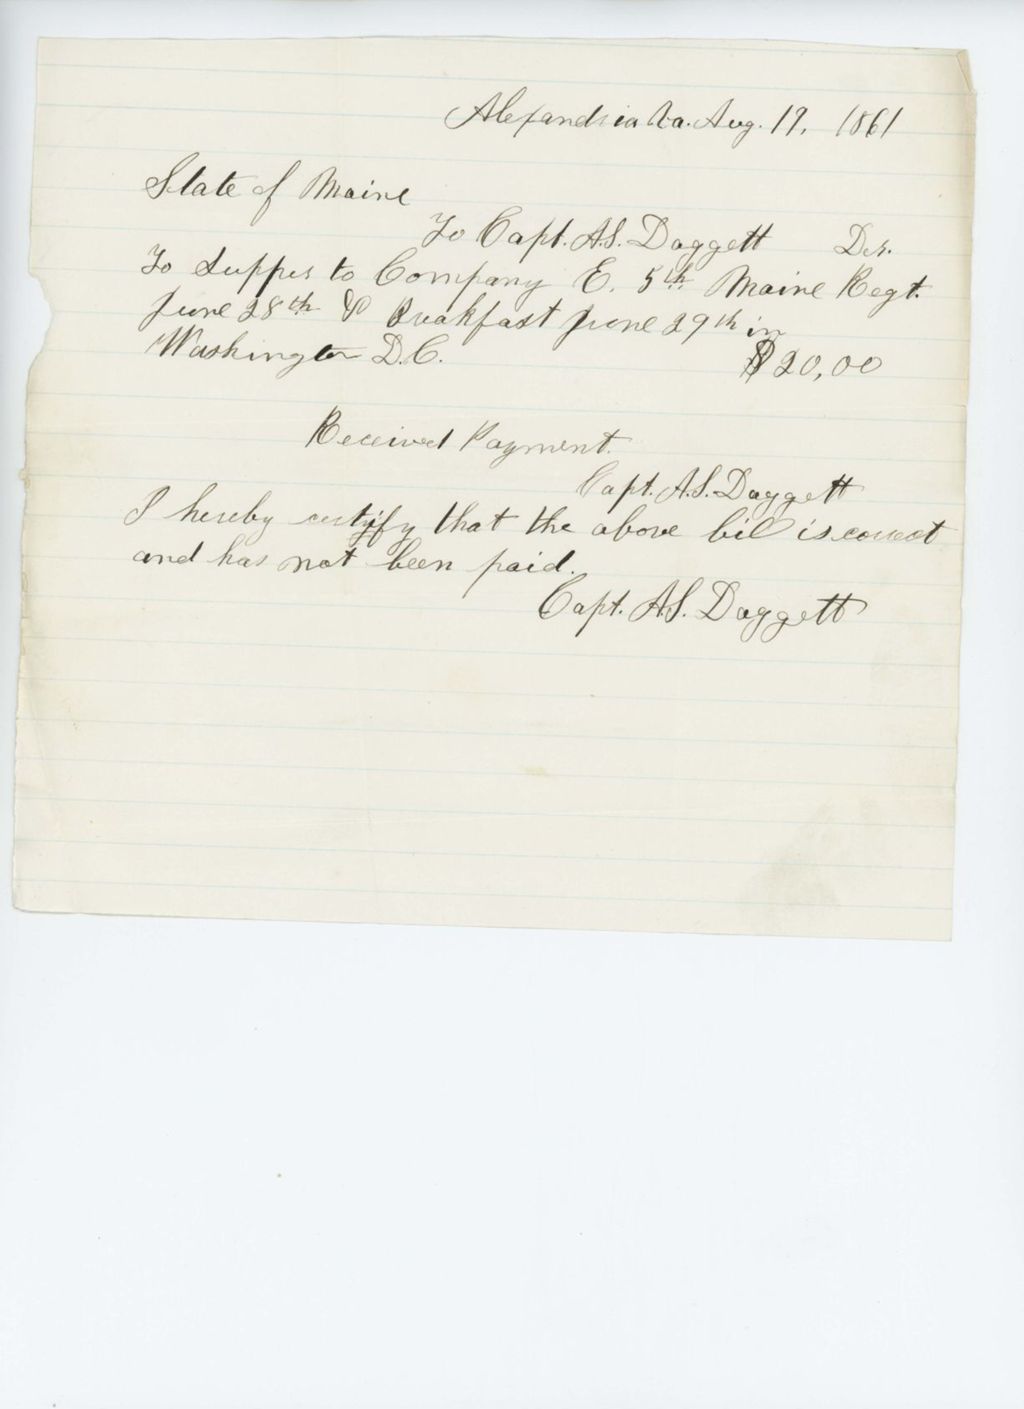 Alexandria Va. Aug. 19, 1861
State of Maine
To Capt. A.S. Daggett Dr.
To Supper to Company E. 5th Maine Regt.
June 28th & Breakfast June 29th in
Washington D.C. $20,00
Received Payment.
Capt. A.S. Daggett
I hereby certify that the above bill is correct
and has not been paid.
Capt. A.S. Daggett